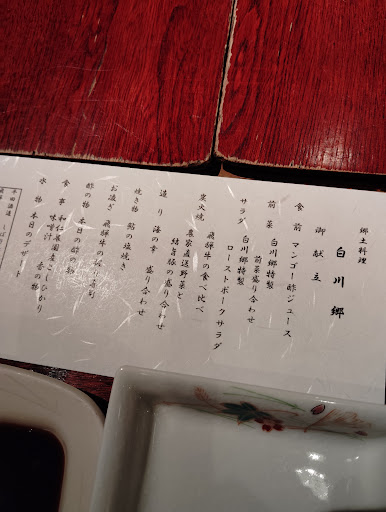 郷土料理
白川郷
御献立
食前 マンゴー酢ジュース
前菜 白川郷特製
前菜盛り合わせ
サラダ 白川郷特製
ローストポークサラダ
炭火焼 飛騨牛の食べ比べ
農家直送野菜と
結旨豚の盛り合わせ
造り 海の幸 盛り合わせ
焼き物 鮎の塩焼き
お凌ぎ 飛騨牛の握り
酢物 本日の酢の物
食事 和仁農園産こしひかり
味噌汁 香の物
水物 本日のデザート